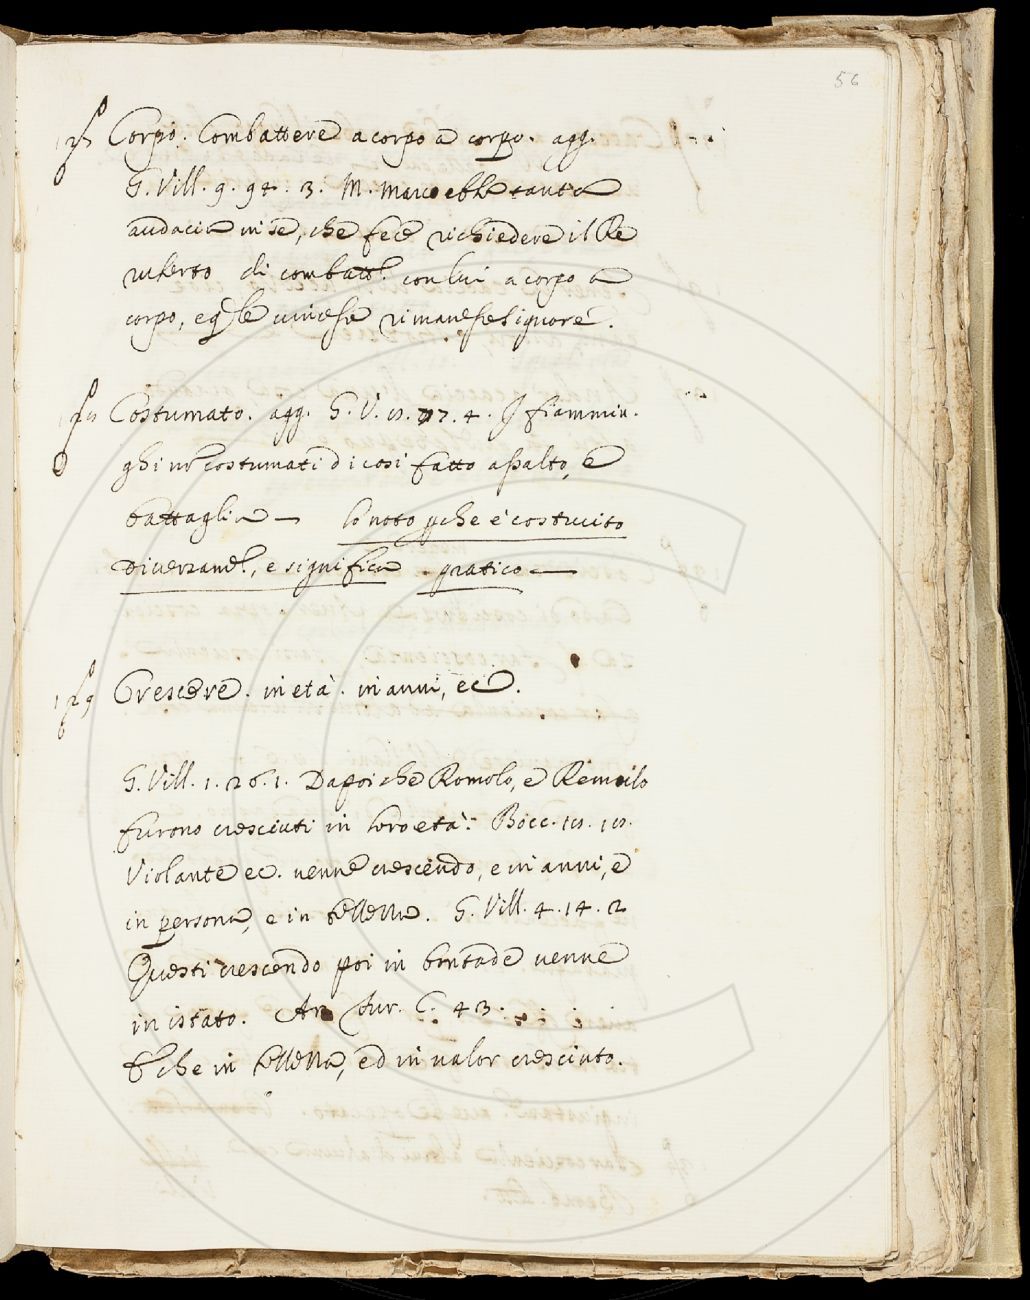 56
Corpo. Combattere a corpo a corpo. agg.
G. Vill. 9. 94. 3. M. Marco ebbe tanta
audacia in se, che fece richiedere il Re
Ruberto di combatt. con lui a corpo a
corpo, e q.le vincesse rimanesse signore.
Costumato. agg. G. V. 77. 4. I fiammin.
ghi nō costumati di così fatto assalto, e
battaglia — lo noto pche è costruito
Diversam.e, e significa pratico —
Crescere. in età. in anni, ec.
G. Vill. 1. 26. 1. Dapoi che Romolo, e Remolo
furono cresciuti in loro età: Bocc.
Violante ec. venne crescendo, e in anni, e
in persona, e in bellezza. G. Vill. 4. 14. 2
Questi crescendo poi in bontade venne
in istato. Ar. Fur. C. 43.
che in bellezza, ed in valor cresciuto.